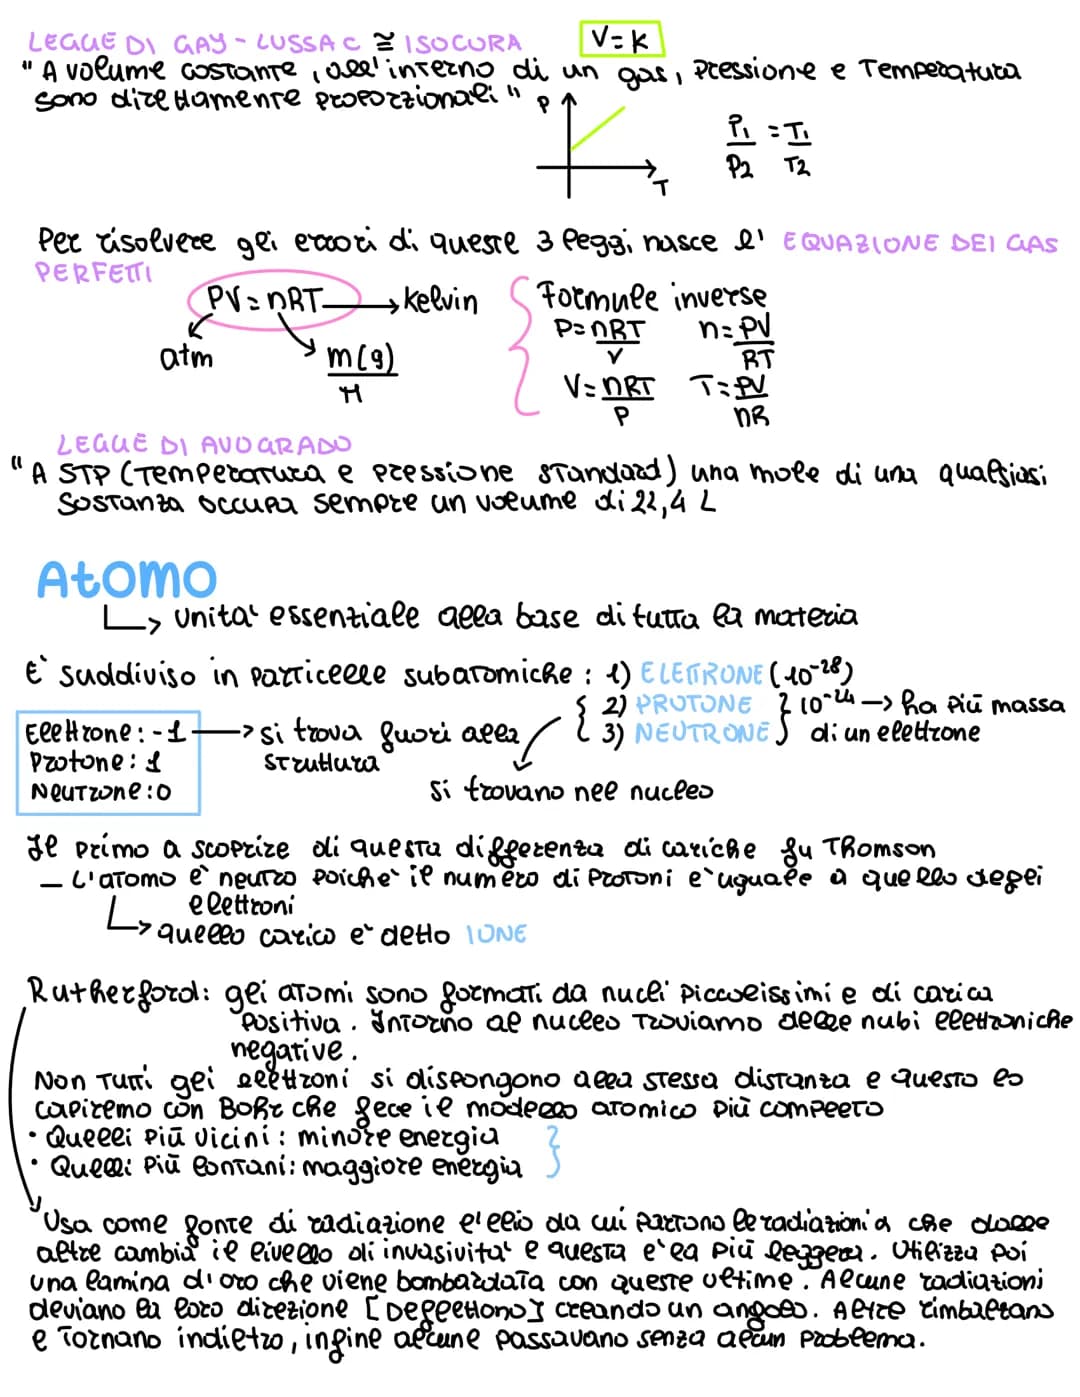 LEGGE DI GAY-LUSSAC ≅ ISOCORA V=K
"A volume costante, all'interno di un gas, Pressione e Temperatura
sono direttamente proporzionali"
P
T
P₁/P₂ = T₁/T₂
Per risolvere gli errori di queste 3 leggi nasce l' EQUAZIONE DEI GAS
PERFETTI
PV=nRT → kelvin
atm
m(g)/M
Formule inverse
P=nRT/V n=PV/RT
V=nRT/P T=PV/nR
LEGGE DI AVOGRADO
"A STP (Temperatura e pressione standard) una mole di una qualsiasi
sostanza occupa sempre un volume di 22,4 L
Atomo
↳ unità essenziale alla base di tutta la materia
E' suddiviso in particelle subatomiche: 1) ELETTRONE (10⁻²⁸)
2) PROTONE } 10⁻²⁴ → ha più massa
3) NEUTRONE } di un elettrone
Elettrone: -1 → si trova fuori alla
struttura
Protone: 1
Neutrone: 0
si trovano nel nucleo
Il primo a scoprire di questa differenza di cariche fu Thomson
- L'atomo è neutro poiché il numero di protoni è uguale a quello degli
elettroni
↳ quello carico è detto IONE
Rutherford: gli atomi sono formati da nuclei piccolissimi e di carica
positiva. Intorno al nucleo troviamo delle nubi elettroniche
negative.
Non tutti gli elettroni si dispongono alla stessa distanza e questo lo
capiremo con Bohr che fece il modello atomico più completo
• Quelli più vicini: minore energia
• Quelli più lontani: maggiore energia
Usa come fonte di radiazione l'elio da cui partono le radiazioni α che dalle
altre cambia il livello di invasività e questa è la più leggera. Utilizza poi
una lamina d'oro che viene bombardata con queste ultime. Alcune radiazioni
deviano la loro direzione [Deflettono] creando un angolo. Altre rimbaltano
e tornano indietro, infine alcune passavano senza alcun problema.